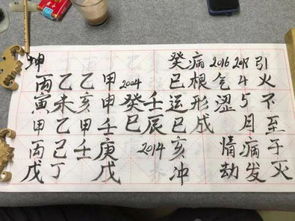 坤 癸病2016 2018引
丙乙乙甲2004 巳根气4火
寅未亥申癸壬运形涩5不
甲甲壬巳辰巳成 月至
丙己壬庚2014亥 情病于
戊丁 戊 冲 劫发灭